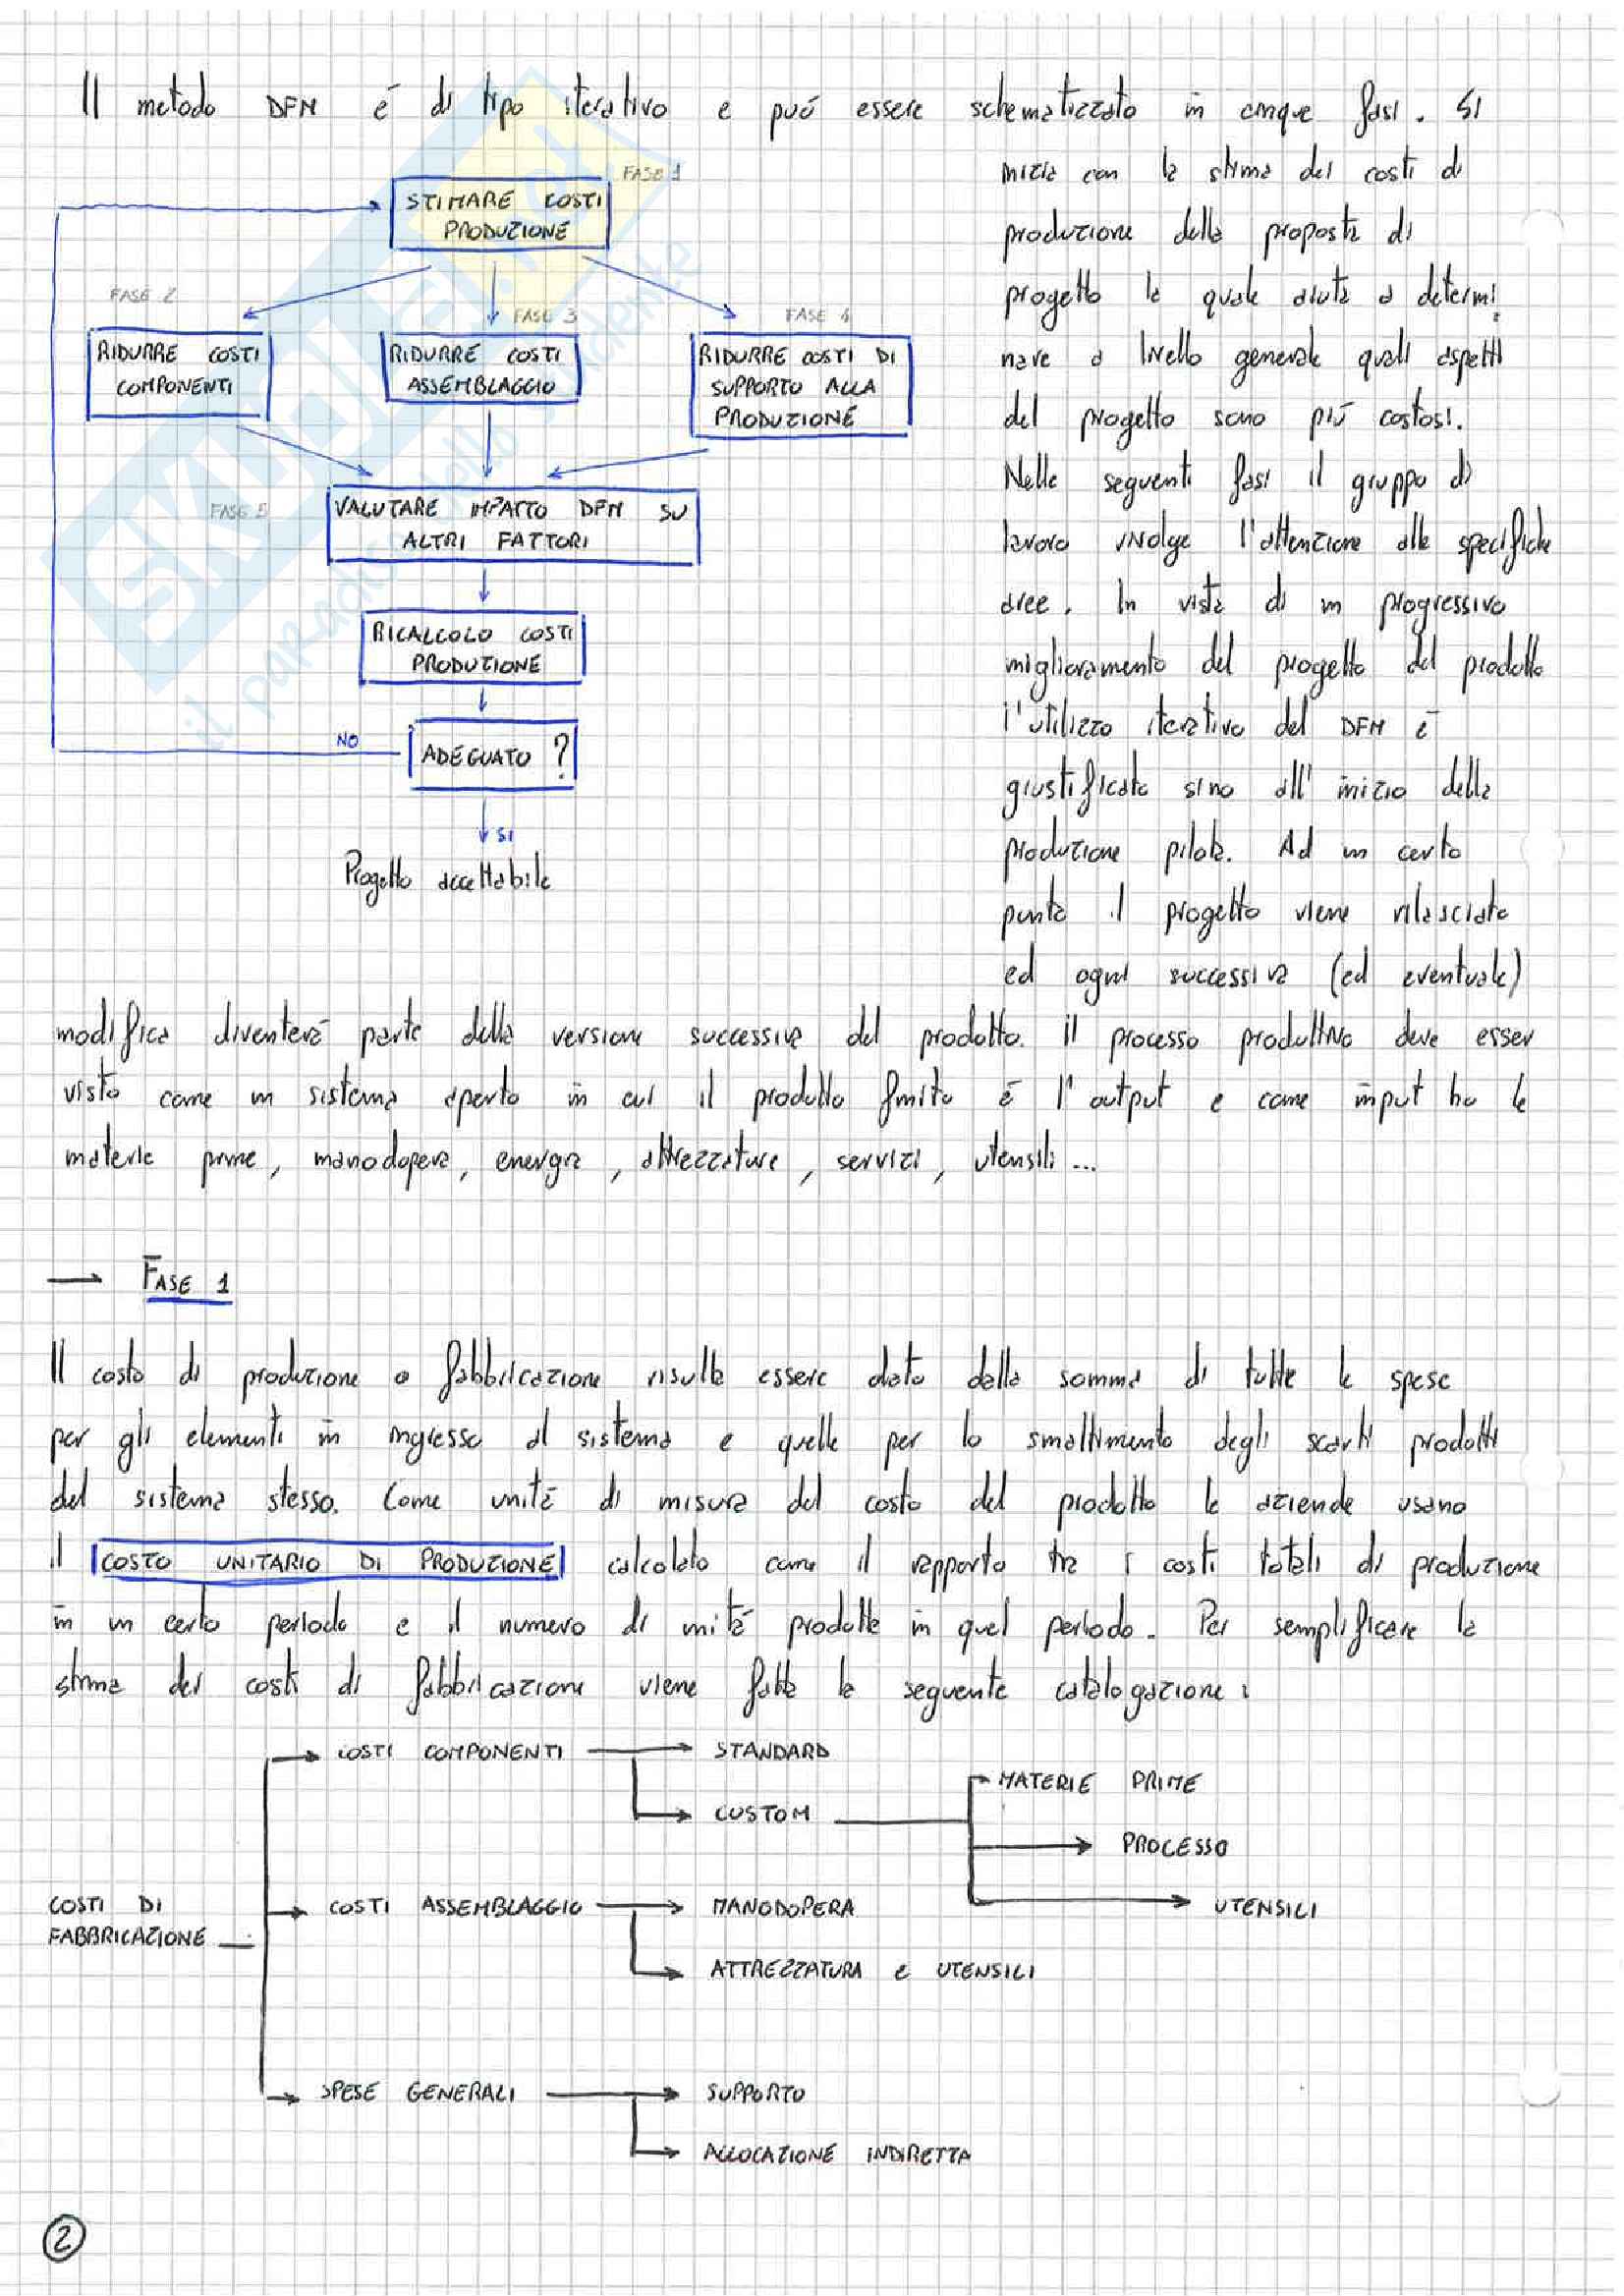 Il metodo DFM é di tipo iterativo e puó essere schematizzato in cinque fasi. Si
inizia con la stima dei costi di
produzione della proposta di
progetto la quale aiuta a determi
nare a livello generale quali aspetti
del progetto sono piú costosi.
Nelle seguenti fasi il gruppo di
lavoro rivolge l'attenzione alle specifiche
aree. In vista di un progressivo
miglioramento del progetto del prodotto
l'utilizzo iterativo del DFM é
giustificato sino all'inizio della
produzione pilota. Ad un certo
punto il progetto viene rilasciato
ed ogni successiva (ed eventuale)
FASE 1
STIMARE COSTI
PRODUZIONE
FASE 2
RIDURRE COSTI
COMPONENTI
FASE 3
RIDURRE COSTI
ASSEMBLAGGIO
FASE 4
RIDURRE COSTI DI
SUPPORTO ALLA
PRODUZIONE
FASE 5
VALUTARE IMPATTO DFM SU
ALTRI FATTORI
RICALCOLO COSTI
PRODUZIONE
NO
ADEGUATO ?
SI
Progetto accettabile
modifica diventerá parte della versione successiva del prodotto. il processo produttivo deve esser
visto come un sistema aperto in cui il prodotto finito é l'output e come input ho le
materie prime, manodopera, energia, attrezzature, servizi, utensili...
→ FASE 1
Il costo di produzione o fabbricazione risulta essere dato dalla somma di tutte le spese
per gli elementi in ingresso al sistema e quelle per lo smaltimento degli scarti prodotti
dal sistema stesso. Come unitá di misura del costo del prodotto le aziende usano
il COSTO UNITARIO DI PRODUZIONE calcolato come il rapporto tra i costi totali di produzione
in un certo periodo e il numero di unitá prodotte in quel periodo. Per semplificare la
stima dei costi di fabbricazione viene fatta la seguente catalogazione:
COSTI DI
FABBRICAZIONE
COSTI COMPONENTI → STANDARD
CUSTOM
MATERIE PRIME
PROCESSO
UTENSILI
COSTI ASSEMBLAGGIO → MANODOPERA
ATTREZZATURA e UTENSILI
SPESE GENERALI → SUPPORTO
ALLOCAZIONE INDIRETTA
2